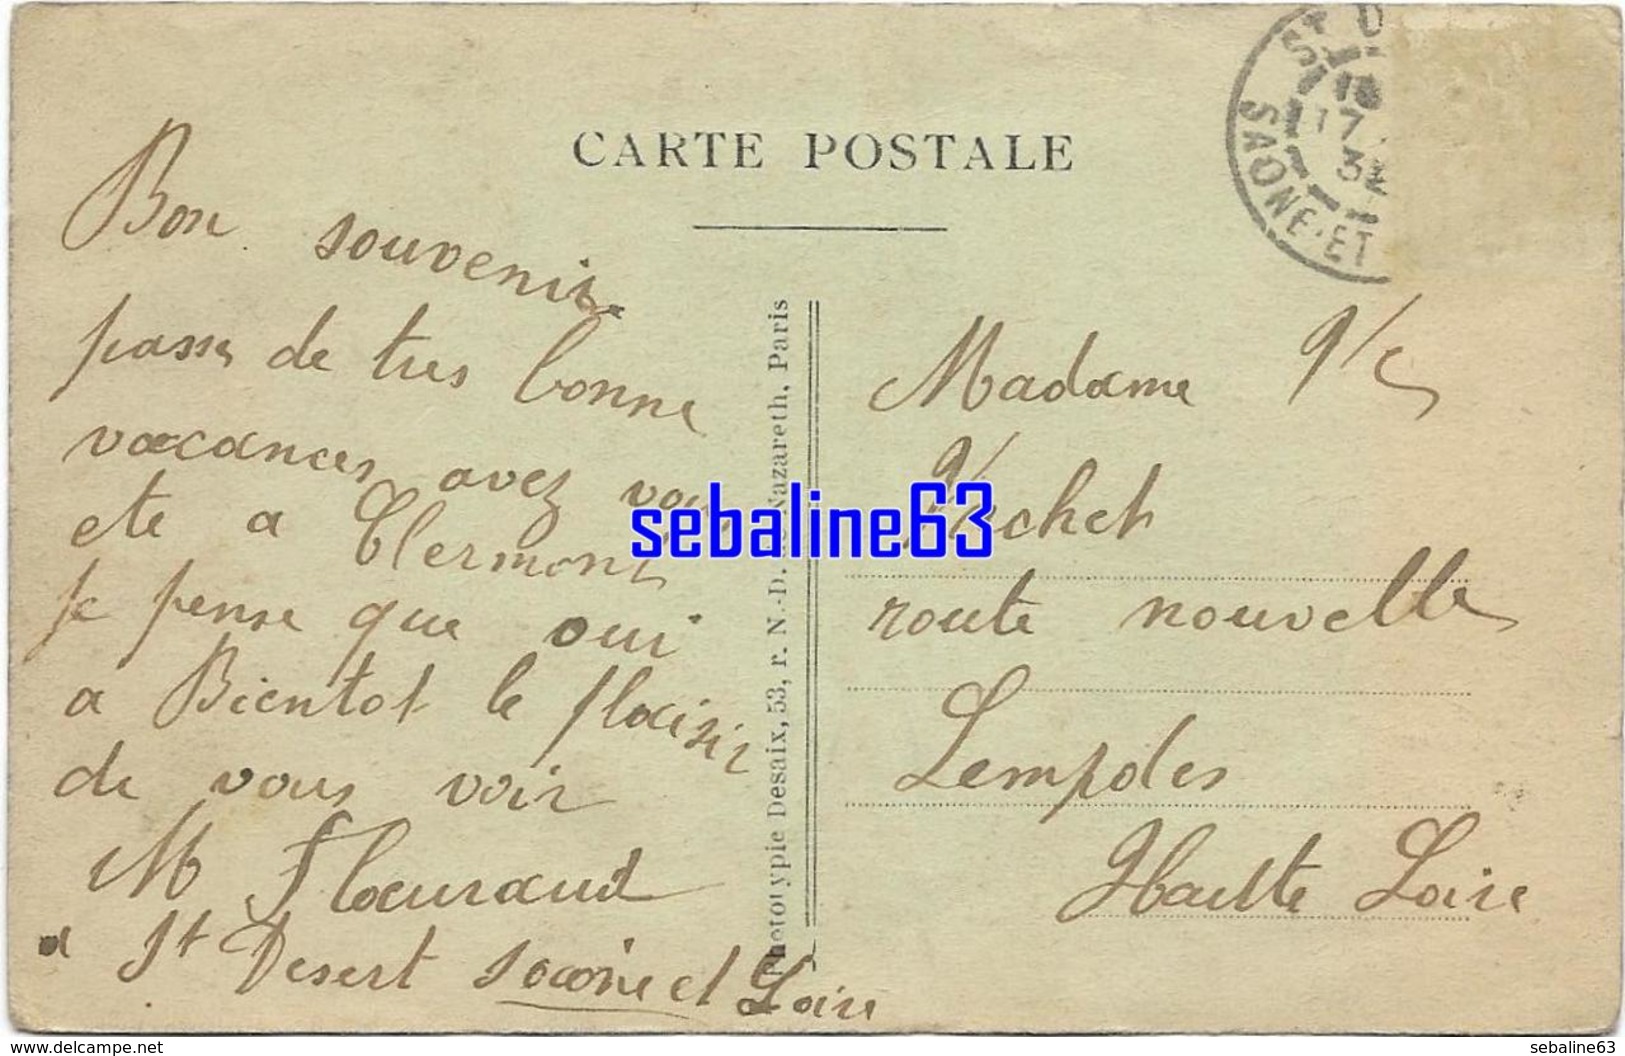 CARTE POSTALE
ST D
18
17
3
SAONE-ET
Bon souvenir
passer de tres bonne
vacances avez vous
ete a Clermont
je pense que oui
a Bientot le plaisir
de vous voir
M
a St Desert Saone et Loire
Phototypie Desaix, 53, r. N.-D. Nazareth, Paris
Madame
route nouvelle
Lempdes
Haute Loire
sebaline63
www.delcampe.net
sebaline63